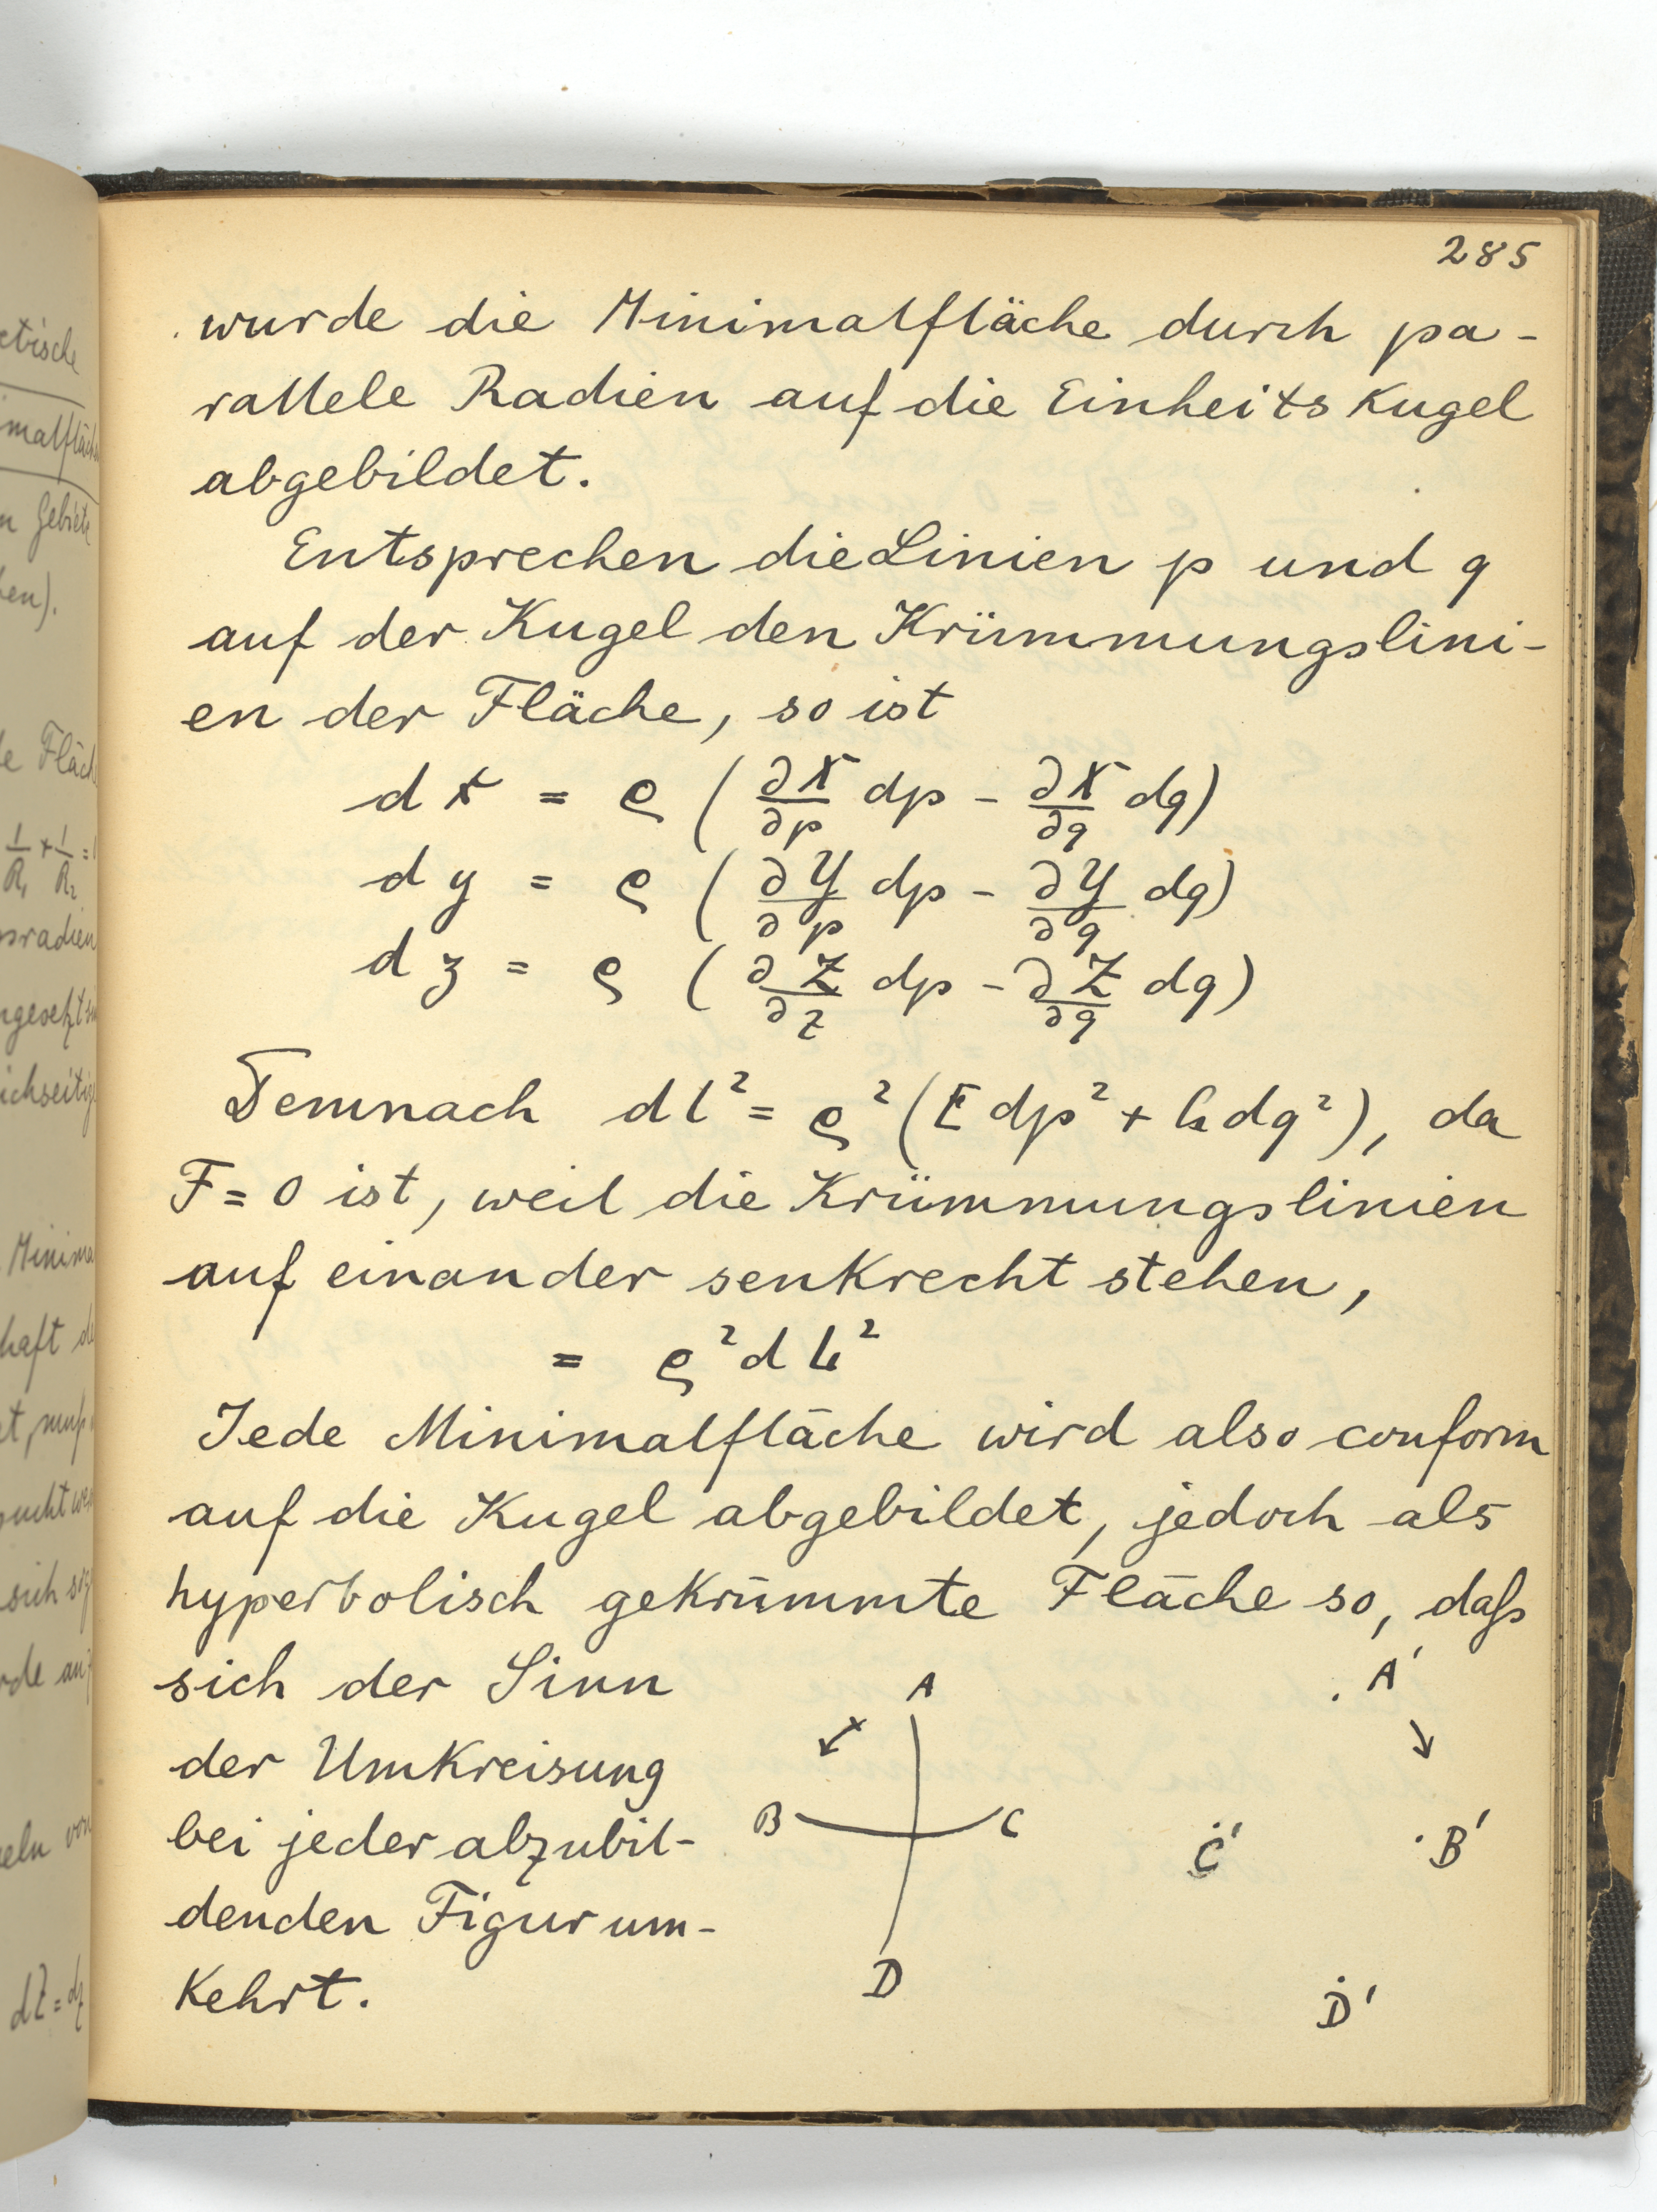 285
wurde die Minimalfläche durch pa-
rallele Radien auf die Einheitskugel
abgebildet.
Entsprechen die Linien p und q
auf der Kugel den Krümmungslini-
en der Fläche, so ist
dx = ρ (∂X/∂p dp - ∂X/∂q dq)
dy = ρ (∂Y/∂p dp - ∂Y/∂q dq)
dz = ρ (∂Z/∂z dp - ∂Z/∂q dq)
Demnach dl² = ρ² (E dp² + G dq²), da
F = 0 ist, weil die Krümmungslinien
auf einander senkrecht stehen,
= ρ² dL²
Jede Minimalfläche wird also conform
auf die Kugel abgebildet, jedoch als
hyperbolisch gekrümmte Fläche so, daß
sich der Sinn
der Umkreisung
bei jeder abzubil-
denden Figur um-
kehrt.
A
B C
D
A'
C' B'
D'
etische
malfläche
Gebiete
en).
e Fläch
1/R₁ + 1/R₂ =
sradien
Minima
haft de
sich
eln von
dZ = dz